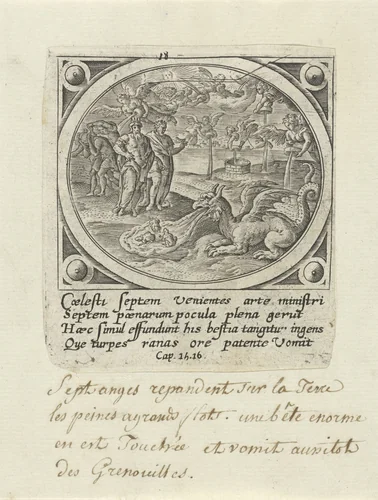 18
Cœlesti septem venientes arte ministri
Septem pœnarum pocula plena gerūt
Hæc simul effundunt his bestia tangitur ingens
Qye turpes ranas ore patente vomit
Cap. 15.16.
Sept anges repandent sur la Terre
les peines a grands flots. une bête enorme
en est Touchée et vomit aussitot
des Grenouilles.